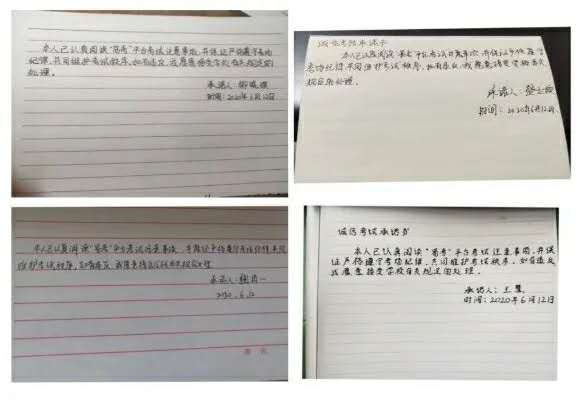 本人已认真阅读“易考”平台考试注意事项,并保证严格遵守考场
纪律,共同维护考试秩序,如有违反,我愿意接受学校有关规定的
处理。
承诺人:
时间:2020年6月12日
诚信考试承诺书
本人已认真阅读 易考 平台考试注意事项,并保证严格遵守
考场纪律共同维护考试秩序,如有违反,我愿意接受学校有关
规定的处理。
承诺人:
时间:2020年6月12日
本人已认真阅读“易考”平台考试注意事项,并保证严格遵守考场纪律,共同
维护考试秩序,如有违反,我愿意接受学校有关规定处理
承诺人:
2020.6.12
诚信考试承诺书
本人已认真阅读“易考”平台考试注意事项,并保
证严格遵守考场纪律,共同维护考试秩序,如有违反
我愿意接受学校有关规定的处理。
承诺人:王
时间:2020年6月12日